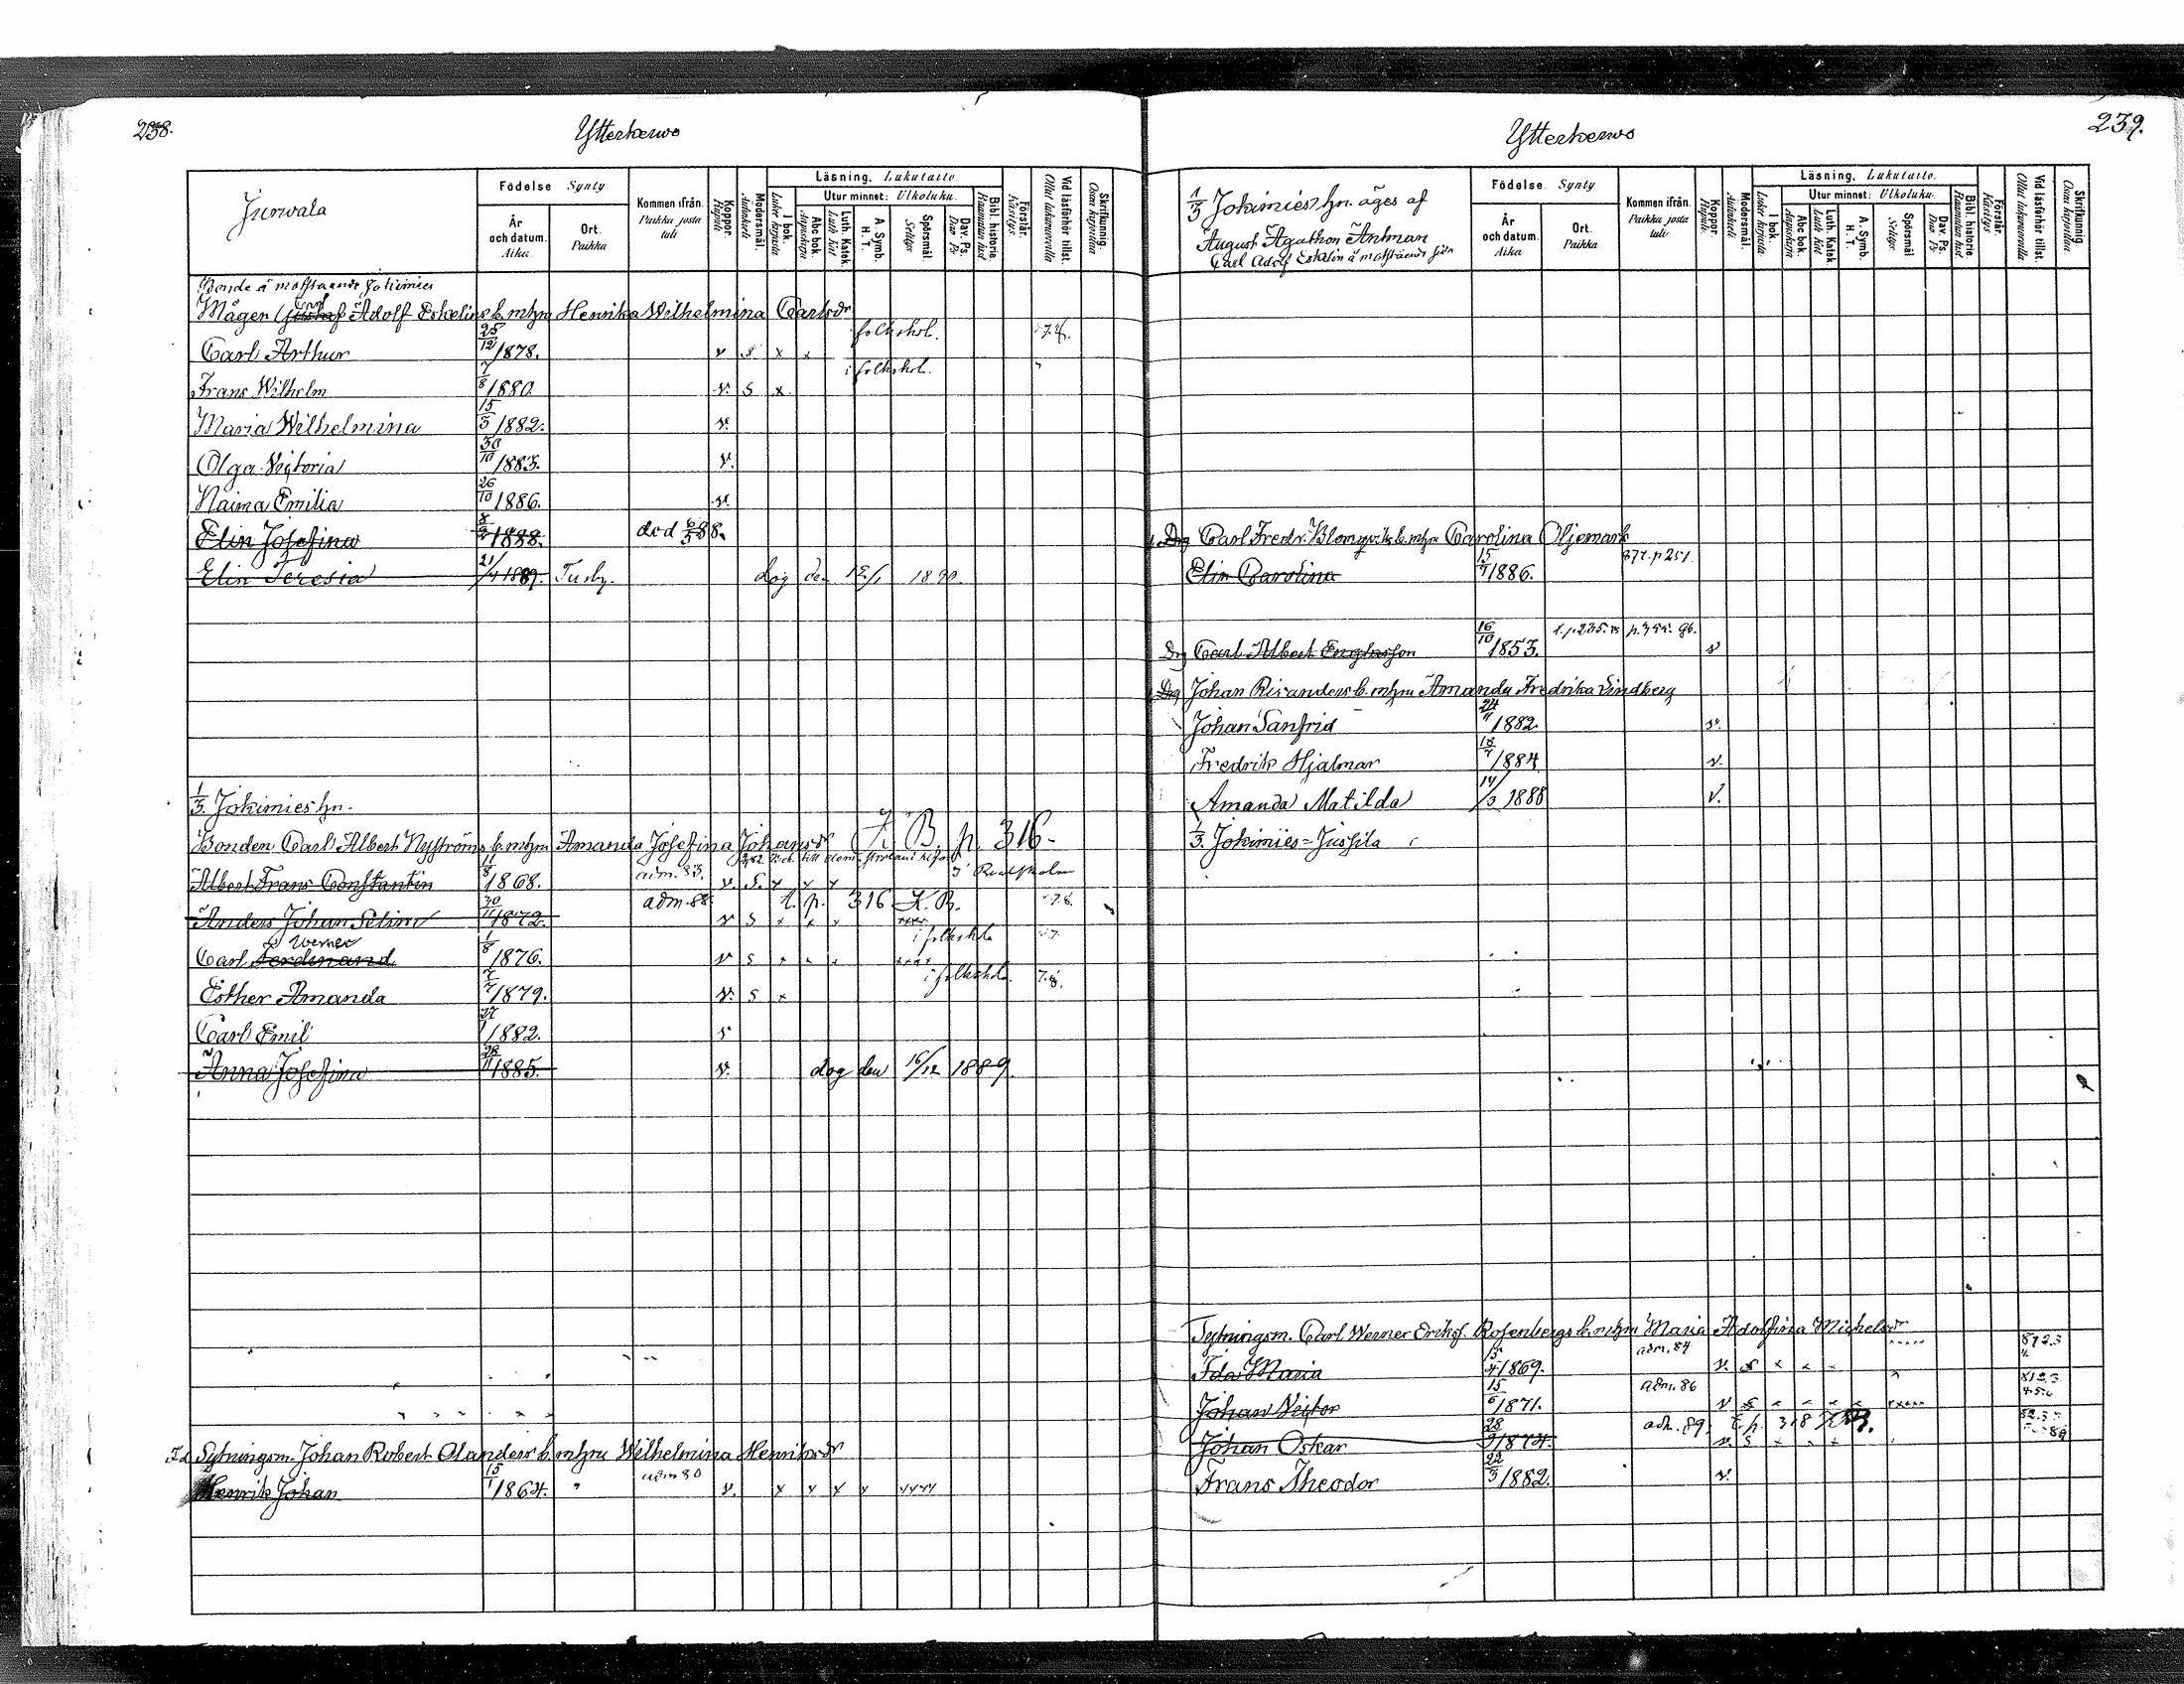 238.
Ytterkerwo
Jurwala
Födelse Synty
År och datum. Aika.
Ort. Paikka
Kommen ifrån. Paikka josta tuli
Koppor. Rupuli
Modersmål. Äidinkieli
Läsning. Lukutaito.
I bok. Luku kirjasta
Utur minnet: Ulkoluku.
Abc bok. Aapiskirja
Luth. Katek. Luth Kat
A. Symb. H. T.
Spörsmål. Selitys
Dav. Ps. Dav Ps
Bibl. historie. Raamatun hist
Förstår. Käsitys
Vid läsförhör tillst. Ollut lukuvuorolla
Skrifkunnig. Osaa kirjoittaa
Bonde å motstaende Jokimies
Måger Gustaf Carl Adolf Eskelins b. m. hu Henrika Wilhelmina Carlsdr
Carl Arthur 25/12 1878. v s x x folkskol. 7.8.
Frans Wilhelm 7/8 1880. v. s x i folkskol. "
Maria Wilhelmina 15/5 1882. v.
Olga Victoria 30/10 1883. v.
Naima Emilia 26/10 1886. v.
Elin Josefina 1888. död 88.
Elin Teresia 21/4 1889. Tusby. dog den 1890
1/3 Jokimies hn.
Bonden Carl Albert Nyströms b. m. hu Amanda Josefina Johansdr K. B. p. 316-
Albert Frans Constantin 11/8 1868. adm. 83. v. s. x x x
Anders Johan Selim 30/11 1872. adm. 88. v s x x x t. p. 316 K. B. 7.8.
Carl Ferdinand Werner 1/8 1876. v s x x x xxxx i folkskol. 7.
Esther Amanda 7/7 1879. v. s x i folkskol. 7.8.
Carl Emil 1882. v
Anna Josefina 28/11 1885. v. dog den 16/12 1889.
Fd Sytningsm. Johan Robert Olanders b. m. hu Wilhelmina Henriksdr
Henrik Johan 15/1 1864. " adm 80 v. x x x x xxxx
239.
Ytterkerwo
1/3 Jokimies hn. äges af
August Agathon Antman
Carl Adolf Eskelin å motstående sida
Födelse. Synty
År och datum. Aika
Ort. Paikka
Kommen ifrån. Paikka josta tuli
Koppor. Rupuli.
Modersmål. Äidinkieli
Läsning. Lukutaito.
I bok. Luku kirjasta
Utur minnet: Ulkoluku.
Abc bok. Aapiskirja
Luth. Katek. Luth Kat
A. Symb. H. T.
Spörsmål Selitys
Dav. Ps. Dav Ps
Bibl. historie. Raamatun hist
Förstår. Käsitys
Vid läsförhör tillst. Ollut lukuvuorolla
Skrifkunnig. Osaa kirjoittaa.
Drg Carl Fredr. Blomqvists b. m. hu Carolina Oljemark
Elin Carolina 15/7 1886. 87 t. p 251.
Drg Carl Albert Engelsson 16/10 1853. v
Drg Johan Risanders b. m. hu Amanda Fredrika Lindberg
Johan Sanfrid 24/11 1882. v.
Fredrik Hjalmar 18/7 1884. v.
Amanda Matilda 14/3 1888 v.
1/3. Jokimies = Jussila
Sytningsm. Carl Werner Eriks. Rosenbergs b. m. hu Maria Adolfina Michelsdr
Ida Maria 15/4 1869. adm. 84 v. s x x x
Johan Victor 15/6 1871. adm. 86 v s x x x x xxxxx
Johan Oskar 28/9 1874. adm. 89, t. p. 318 v. s x x x
Frans Theodor 22/3 1882. v.